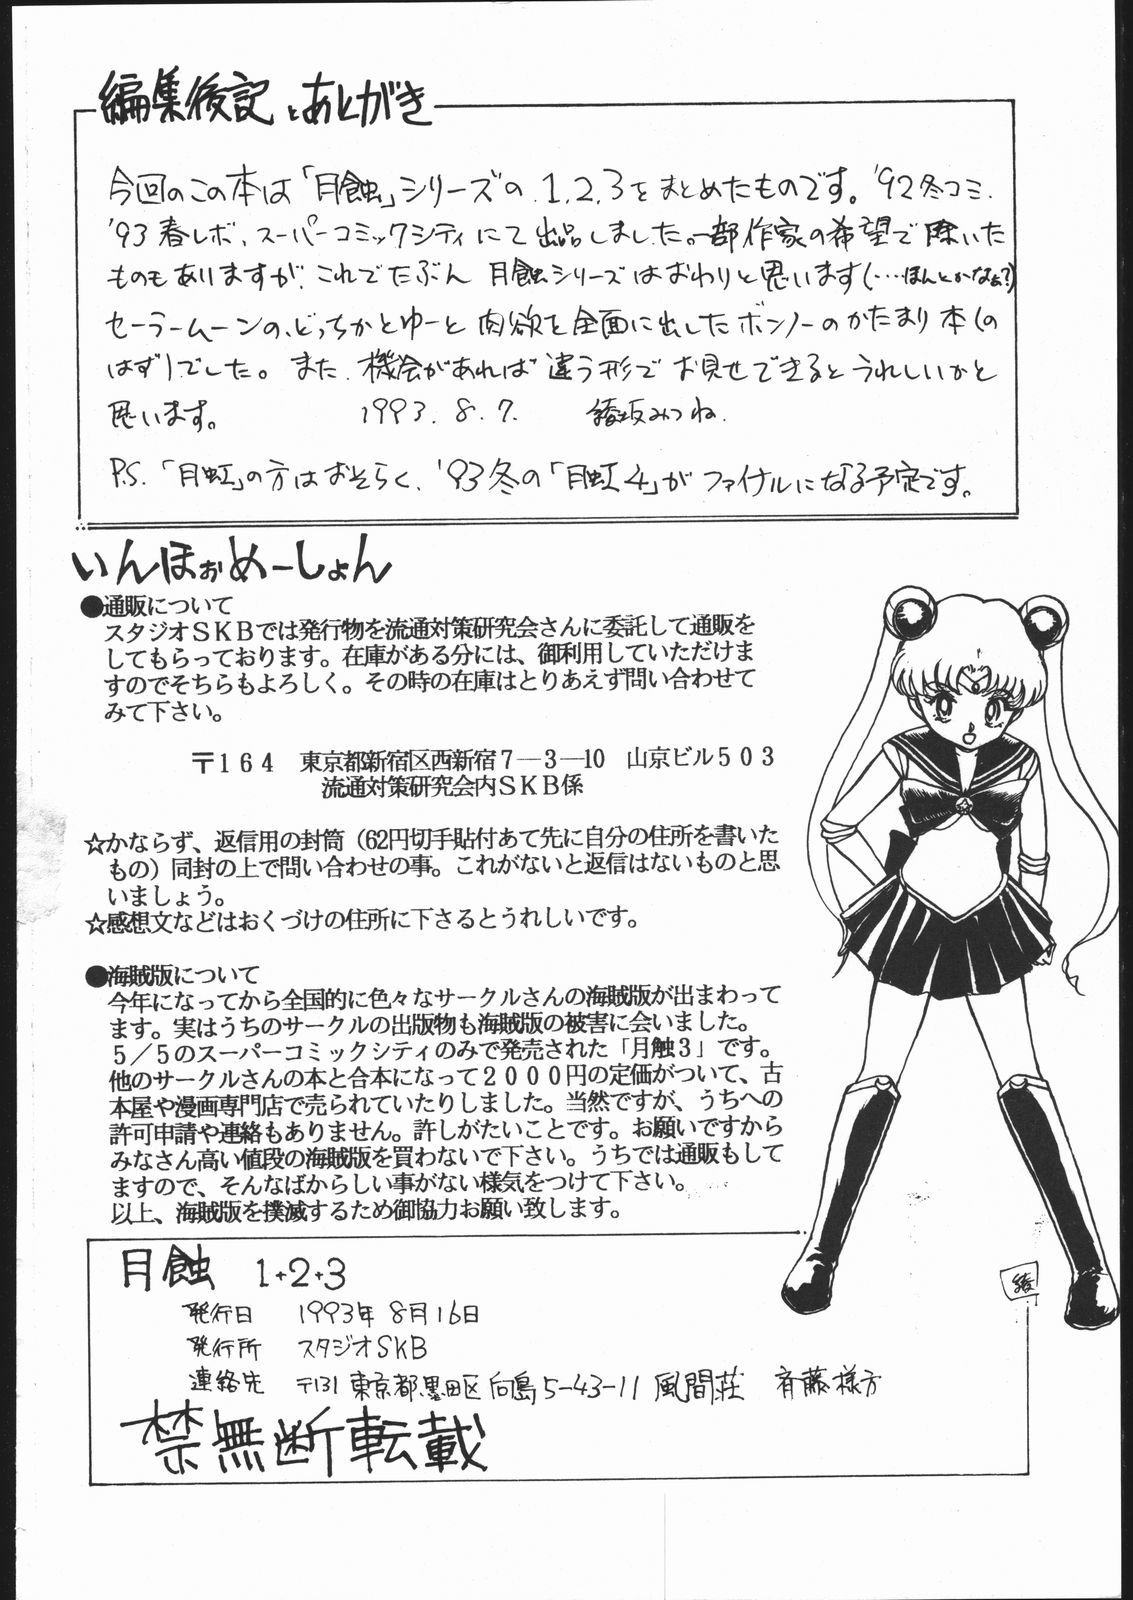 編集後記とあとがき
今回のこの本は「月蝕」シリーズの、1,2,3をまとめたものです。'92冬コミ、
'93春レボ、スーパーコミックシティにて出品しました。一部作家の希望で除いた
ものもありますが、これでたぶん 月蝕シリーズはおわりと思います(…ほんとかなぁ?)
セーラームーンの、どっちかとゆーと肉欲を全面に出したボンノーのかたまり本(の
はず)でした。また、機会があれば違う形でお見せできるとうれしいかと
思います。 1993.8.7. 綾坂みつね.
P.S.「月虹」の方はおそらく、'93冬の「月虹4」がファイナルになる予定です。
いんほぉめーしょん
●通販について
スタジオSKBでは発行物を流通対策研究会さんに委託して通販を
してもらっております。在庫がある分には、御利用していただけま
すのでそちらもよろしく。その時の在庫はとりあえず問い合わせて
みて下さい。
〒164 東京都新宿区西新宿7―3―10 山京ビル503
流通対策研究会内SKB係
☆かならず、返信用の封筒(62円切手貼付あて先に自分の住所を書いた
もの)同封の上で問い合わせの事。これがないと返信はないものと思
いましょう。
☆感想文などはおくづけの住所に下さるとうれしいです。
●海賊版について
今年になってから全国的に色々なサークルさんの海賊版が出まわって
ます。実はうちのサークルの出版物も海賊版の被害に会いました。
5/5のスーパーコミックシティのみで発売された「月触3」です。
他のサークルさんの本と合本になって2000円の定価がついて、古
本屋や漫画専門店で売られていたりしました。当然ですが、うちへの
許可申請や連絡もありません。許しがたいことです。お願いですから
みなさん高い値段の海賊版を買わないで下さい。うちでは通販もして
ますので、そんなばからしい事がない様気をつけて下さい。
以上、海賊版を撲滅するため御協力お願い致します。
綾
月蝕 1+2+3
発行日 1993年8月16日
発行所 スタジオSKB
連絡先 〒131 東京都墨田区向島5-43-11 風間荘 斉藤様方
禁無断転載